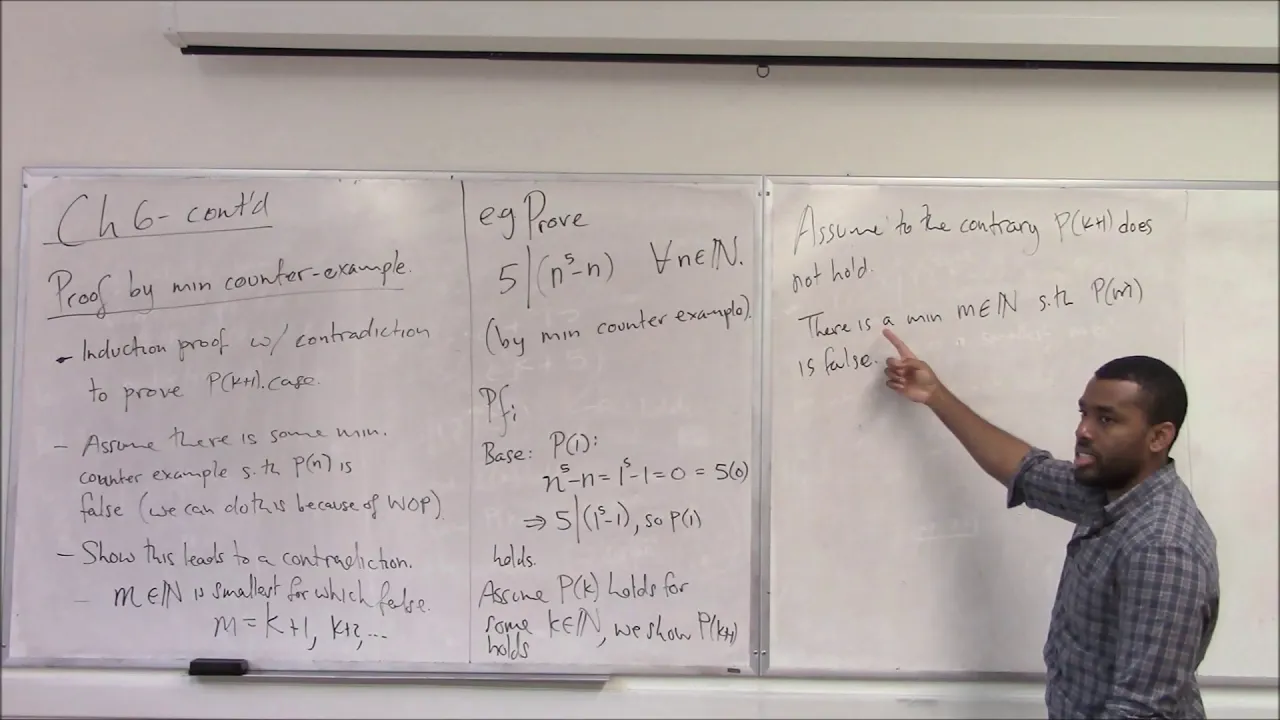 Ch 6- cont'd
Proof by min counter-example.
- Induction proof w/ contradiction
to prove P(k+1) case.
- Assume there is some min.
counter example s.th P(n) is
false (we can do this because of WOP).
- Show this leads to a contradiction.
- m∈ℕ is smallest for which false.
m = k+1, k+2, ...
eg Prove
5|(n⁵-n) ∀n∈ℕ.
(by min counter example).
Pf:
Base: P(1):
n⁵-n = 1⁵-1 = 0 = 5(0)
⇒ 5|(1⁵-1), so P(1)
holds.
Assume P(k) holds for
some k∈ℕ, we show P(k+1)
holds
Assume to the contrary P(k+1) does
not hold.
There is a min m∈ℕ s.th P(m)
is false.